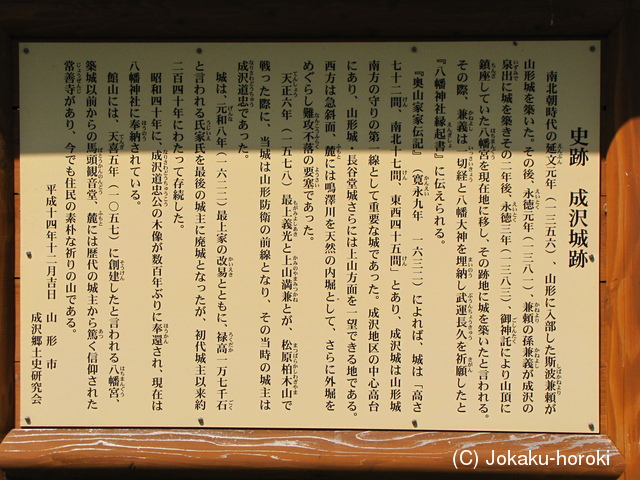 史跡　成沢城跡
南北朝時代の延文元年（一三五六）、山形に入部した斯波兼頼が
山形城を築いた。その後、永徳元年（一三八一）、兼頼の孫兼義が成沢の
泉出に城を築きその二年後、永徳三年（一三八三）、御神託により山頂に
鎮座していた八幡宮を現在地に移し、その跡地に城を築いたと言われる。
その際、兼義は一切経と八幡大神を埋納し武運長久を祈願したと
『八幡神社縁起書』に伝えられる。
『奥山家家伝記』（寛永九年　一六三二）によれば、城は「高さ
七十二間、南北十七間、東西四十五間」とあり、成沢城は山形城
南方の守りの第一線として重要な城であった。成沢地区の中心高台
にあり、山形城、長谷堂城さらには上山方面を一望できる地である。
西方は急斜面、麓には鳴澤川を天然の内堀として、さらに外堀を
めぐらし難攻不落の要塞であった。
天正六年（一五七八）最上義光と上山満兼とが、松原柏木山で
戦った際に、当城は山形防衛の前線となり、その当時の城主は
成沢道忠であった。
城は、元和八年（一六二二）最上家の改易とともに、禄高一万七千石
と言われる氏家氏を最後の城主に廃城となったが、初代城主以来約
二百四十年にわたって存続した。
昭和四十年に、成沢道忠公の木像が数百年ぶりに奉還され、現在は
八幡神社に奉納されている。
館山には、天喜五年（一〇五七）に創建したと言われる八幡宮、
築城以前からの馬頭観音堂、麓には歴代の城主から篤く信仰された
常善寺があり、今でも住民の素朴な祈りの山である。
平成十四年十二月吉日　山　形　市
成沢郷土史研究会
(C) Jokaku-horoki